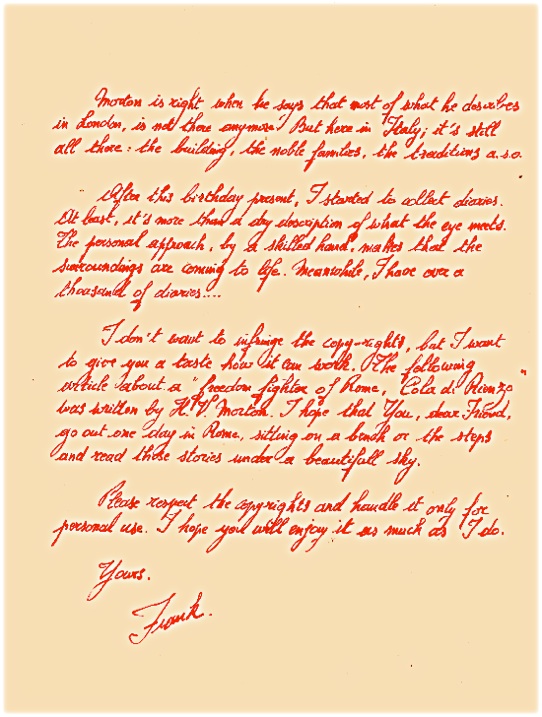 Morton is right when he says that most of what he describes
in London, is not there anymore. But here in Italy; it's still
all there: the building, the noble families, the traditions a.s.o.
After this birthday present, I started to collect diaries.
At least, it's more than a dry description of what the eye meets.
The personal approach, by a skilled hand, makes that the
surroundings are coming to life. Meanwhile, I have over a
thousand of diaries....
I don't want to infringe the copy-rights, but I want
to give you a taste how it can work. The following
article about a "freedom fighter of Rome, Cola di Rienzo"
was written by H.V. Morton. I hope that You, dear Friend,
go out one day in Rome, sitting on a bench or the steps
and read those stories under a beautifull sky.
Please respect the copyrights and handle it only for
personal use. I hope you will enjoy it as much as I do.
Yours.
Frank.